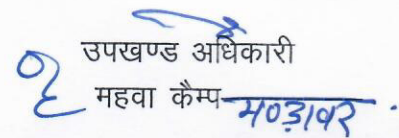 उपखण्ड अधिकारी
महवा कैम्प-मण्डावर